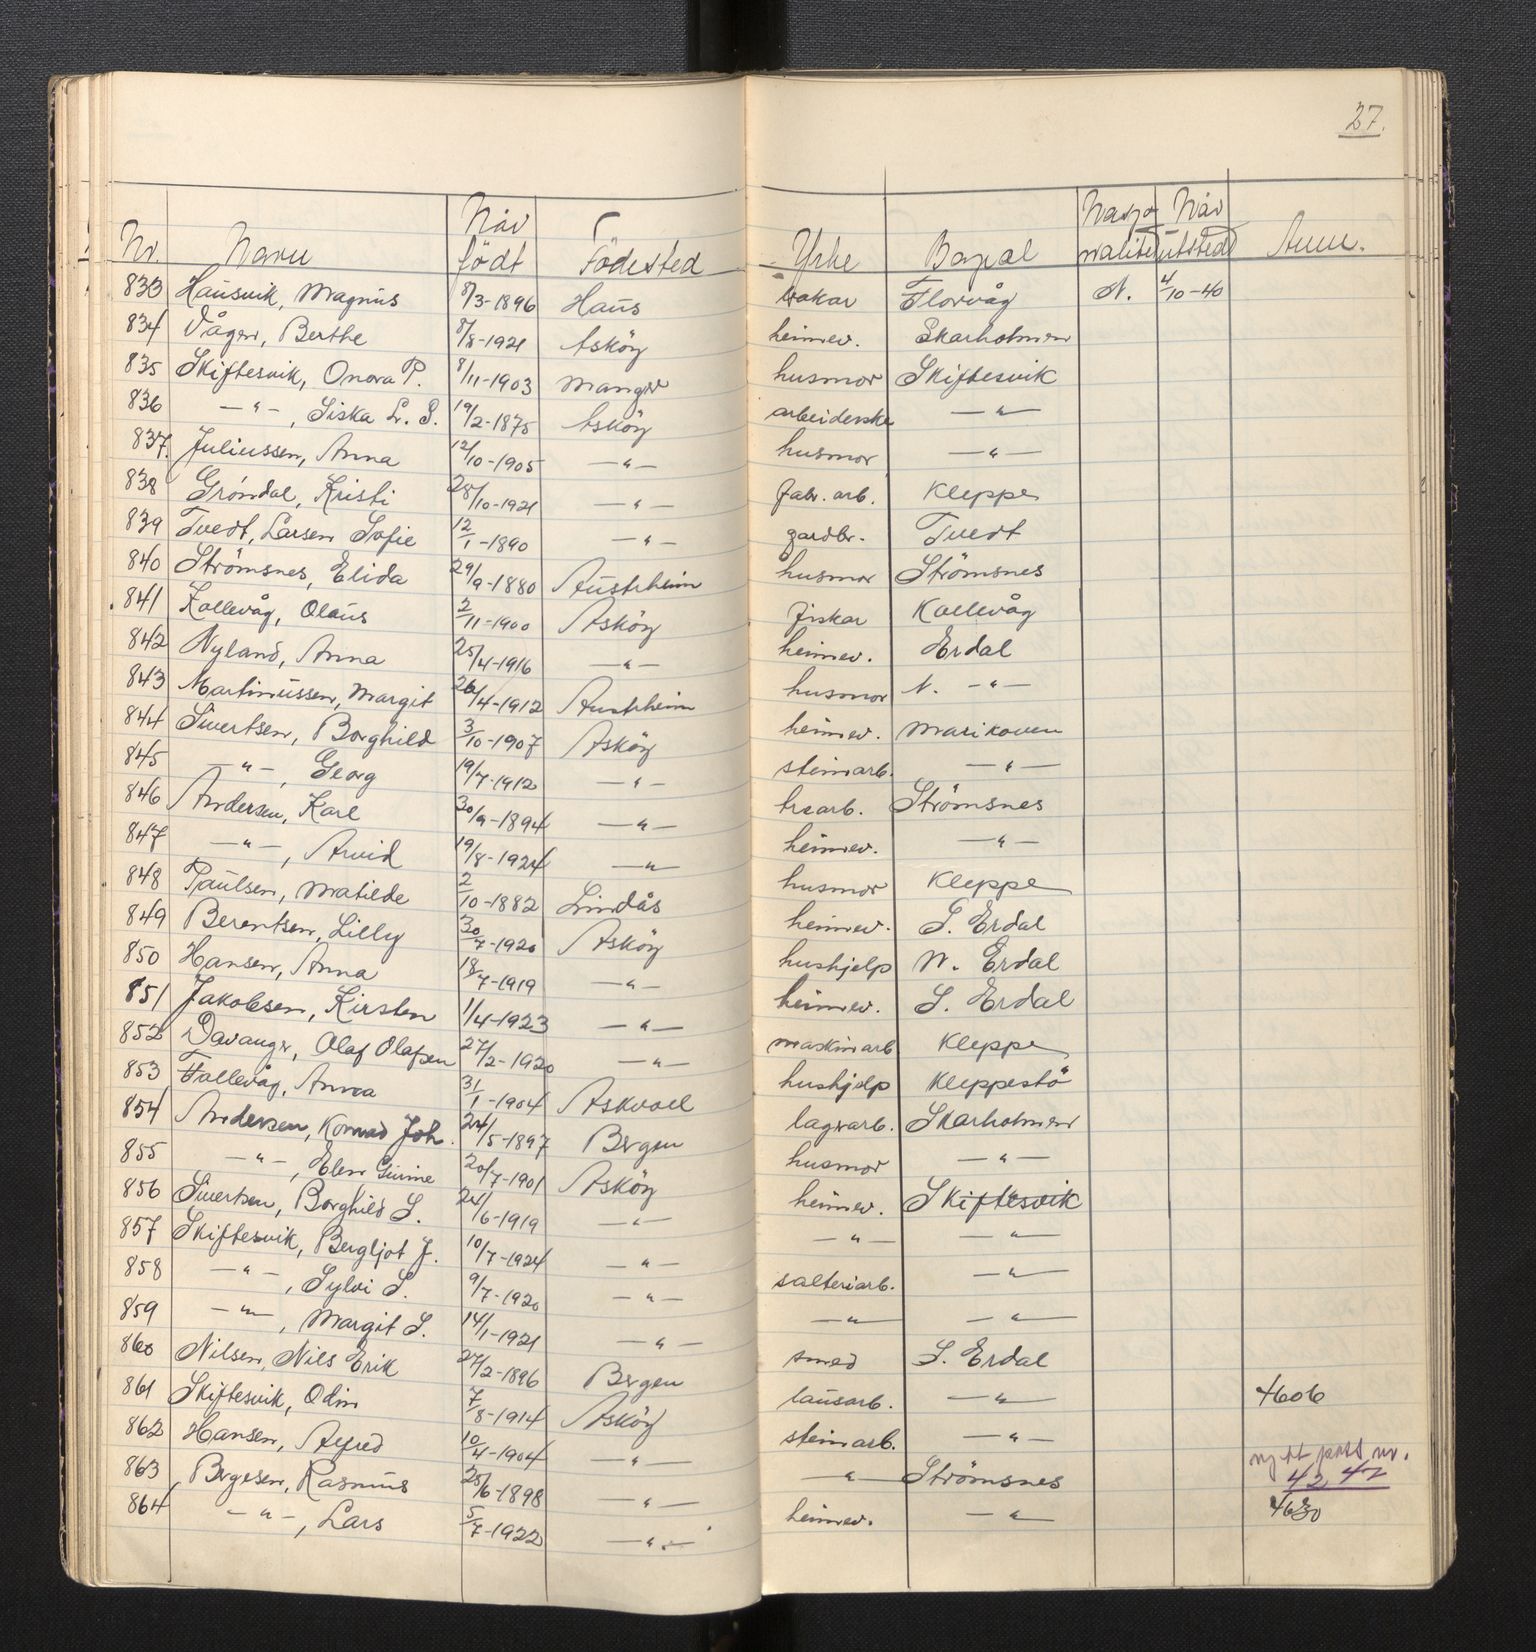 27.
Nr. Navn Når født Födested Yrke Bopæl Nasjonalitet Når utsted Anm.
833 Hausvik, Magnus 8/3-1896 Haus vakar Florvåg N. 4/10-40
834 Vågen, Berthe 8/8-1921 Asköy heimev. Skarholmen
835 Skiftesvik, Onora P. 8/11-1903 Manger husmor Skiftesvik
836 —"—, Siska L. S. 19/2-1875 Asköy arbeiderske —"—
837. Juliussen, Anna 12/10-1905 —"— husmor —"—
838 Gröndal, Kristi 28/10-1921 —"— fabr. arb. Kleppe
839 Tvedt, Larsen Sofie 12/1-1890 —"— gardbr. Tvedt
840 Strömsnes, Elida 29/9-1880 Austrheim husmor Strömsnes
841 Kollevåg, Olaus 2/11-1900 Asköy fiskar Kollevåg
842 Nyland, Anna 25/4-1916 —"— heimev. Erdal
843 Martinussen, Margit 26/4-1912 Austrheim husmor N. —"—
844 Sivertsen, Borghild 3/10-1907 Asköy heimev. Marikoven
845 —"—, Georg 19/7-1912 —"— steinarb. —"—
846 Andersen, Karl 30/9-1894 —"— trearb. Strömsnes
847 —"—, Arvid 19/8-1924 —"— heimev. —"—
848 Paulsen, Matilde 2/10-1882 Lindås husmor Kleppe
849 Berentsen, Lilly 30/7-1920 Asköy heimev. S. Erdal
850 Hansen, Anna 18/7-1919 —"— hushjelp N. Erdal
851 Jakobsen, Kirsten 1/4-1923 —"— heimev. S. Erdal
852 Davanger, Olaf Olafsen 27/2-1920 —"— maskinarb Kleppe
853 Follevåg, Anna 31/1-1904 Askvoll hushjelp Kleppestö
854 Andersen, Konrad Joh. 24/5-1897 Bergen lagerarb. Skarholmen
855 —"—, Elen Gurine 20/7-1901 Asköy husmor —"—
856 Sivertsen, Borghild S. 24/6-1919 —"— heimev. Skiftesvik
857 Skiftesvik, Bergljot J. 10/7-1924 —"— —"— —"—
858 —"—, Sylvi S. 9/7-1920 —"— salteriarb. —"—
859 —"—, Margit S. 14/1-1921 —"— —"— —"—
860 Nilsen, Nils Erik 27/2-1896 Bergen smed S. Erdal
861 Skiftesvik, Odin 7/8-1914 Asköy lausarb. —"— 4606
862 Hansen, Alfred 10/4-1904 " steinarb. —"—
863 Birgesen, Rasmus 25/6-1898 —"— —"— Strömsnes nytt pass nr. 4247
864 —"—, Lars 5/7-1922 —"— heimev. —"— 4630